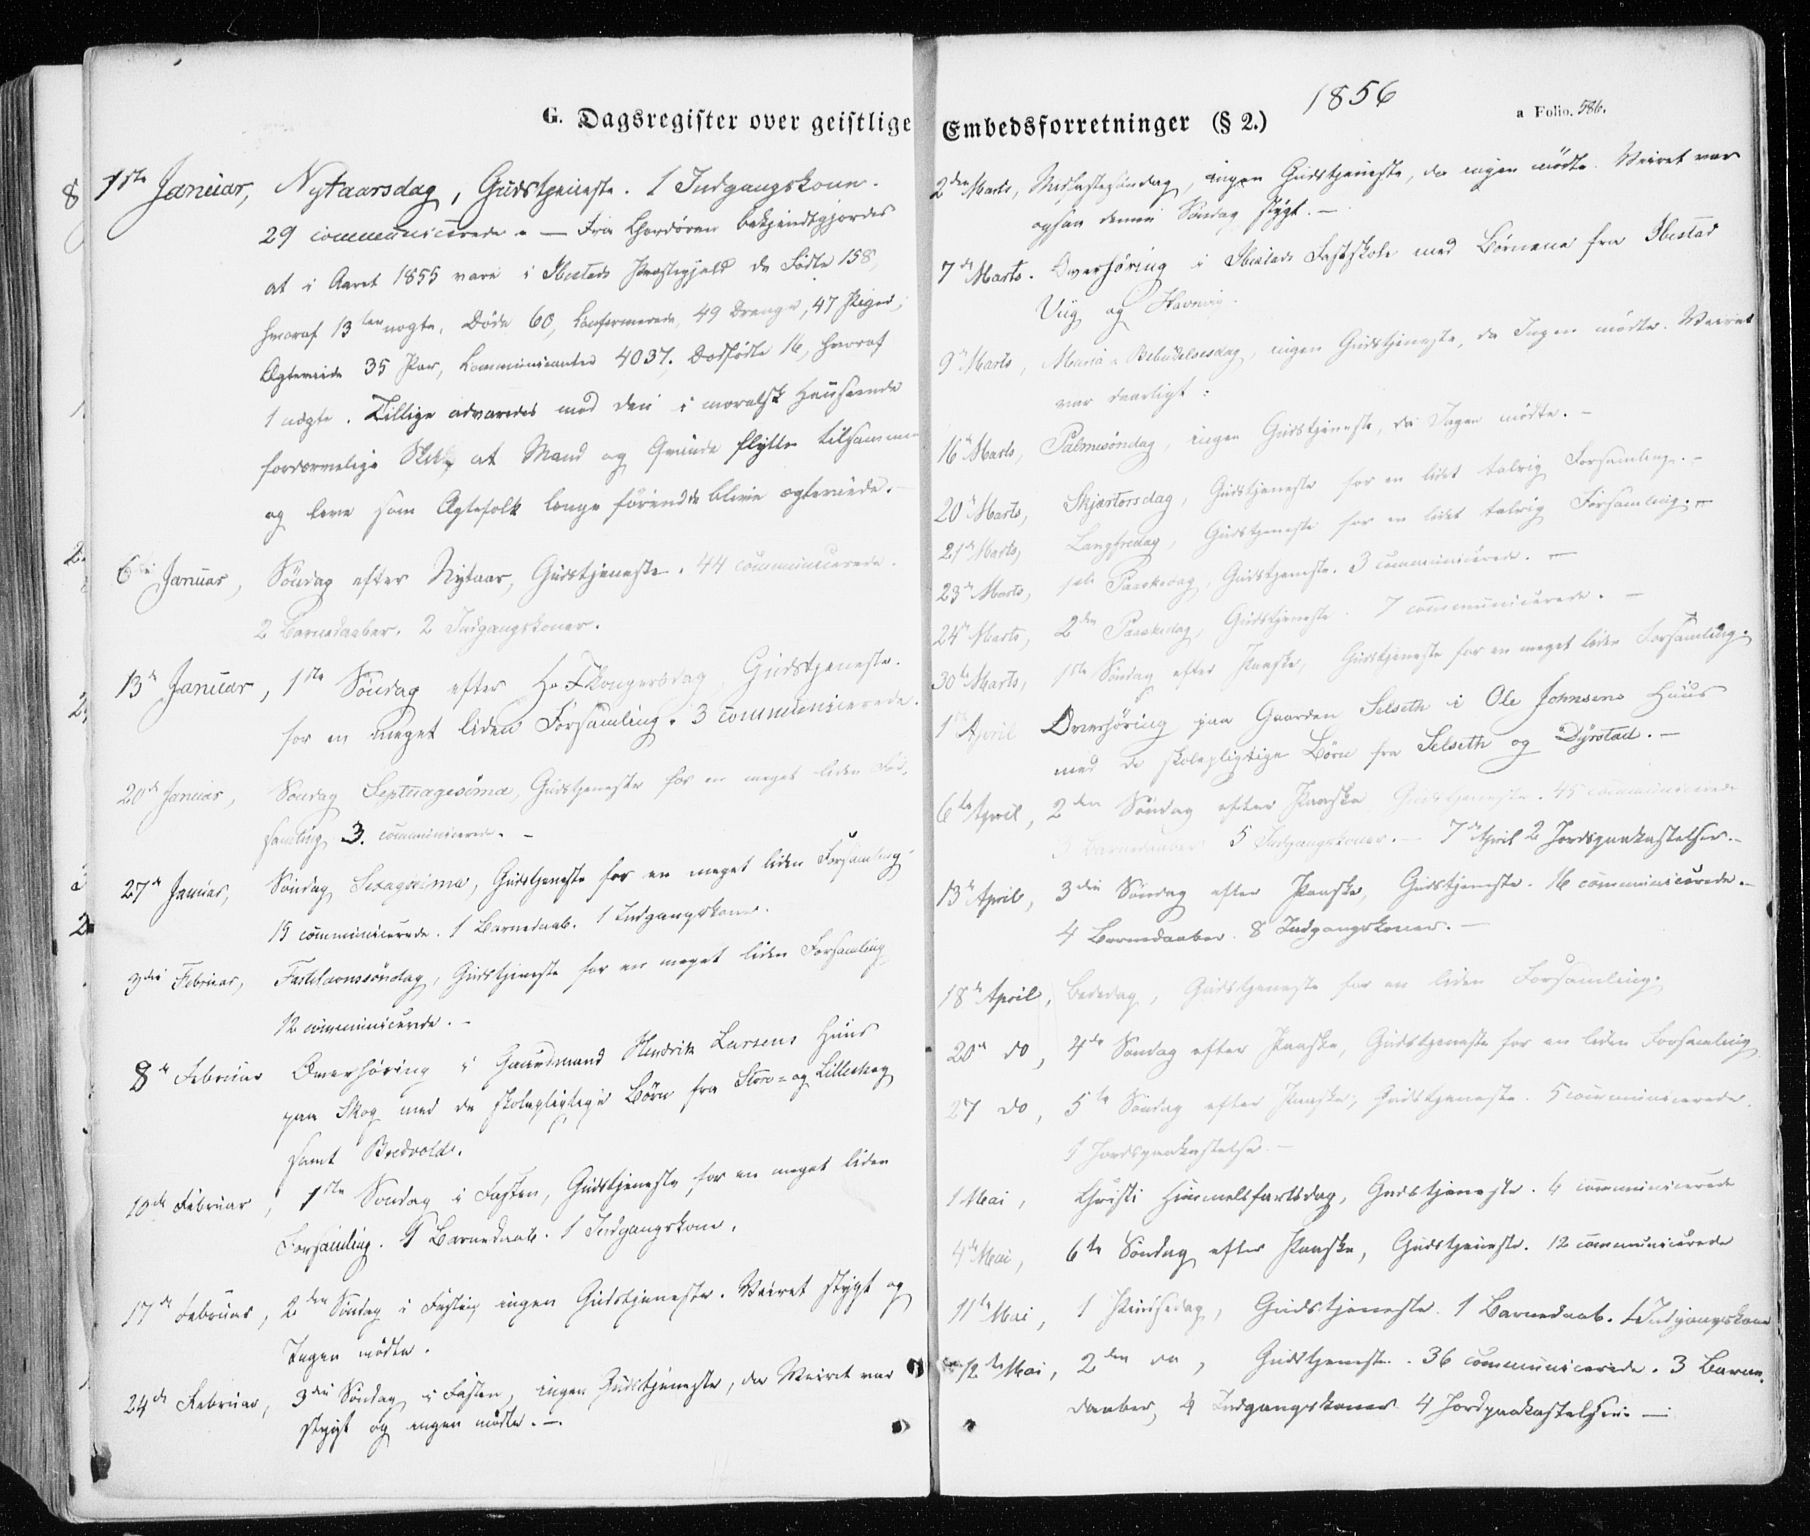 G. Dagsregister over geistlige Embedsforretninger (§ 2.) 1856
a Folio. 586.
1ste Januar, Nytaarsdag, Gudstjeneste. 1 Indgangskone.
29 communicerede. — Fra Chordøren bekjendtgjordes
at i Aaret 1855 vare i Ibestads Præstegjeld de Fødte 158,
hvoraf 13 uægte, Døde 60, Confirmerede, 49 Drenge, 47 Piger,
Ægteviede 35 Par, Communicanter 4037. Dødfødte 16, hvoraf
1 uægte. Tillige advaredes mod den i moralsk Henseende
fordærvelige Skik, at Mand og Qvinde flytte tilsammen
og leve som Ægtefolk længe førend de blive ægteviede. —
6te Januar, Søndag efter Nytaar, Gudstjeneste. 44 communicerede.
2 Barnedaaber. 2 Indgangskoner.
13de Januar, 1ste Søndag efter H. 3 Kongersdag, Gudstjeneste
for en meget liden Forsamling. 3 communicerede.
20de Januar, Søndag Septuagesima, Gudstjeneste for en meget liden For-
samling, 3 communicerede. —
27de Januar, Søndag Sexagesima, Gudstjeneste for en meget liden Forsamling
15 communicerede. 1 Barnedaab. 1 Indgangskone.
3die Februar, Fastelavnssøndag, Gudstjeneste for en meget liden Forsamling
12 communicerede. —
8de Februar Overhøring i Gaardmand Hendrik Larsens Huus
paa Skog med de skolepligtige Børn fra Store- og Lilleskog
samt Bredvold.
10de Februar, 1ste Søndag i Fasten, Gudstjeneste for en meget liden
Forsamling. 1 Barnedaab. 1 Indgangskone.
17de Februar, 2den Søndag i Fasten, ingen Gudstjeneste. Veiret stygt og
Ingen mødte.
24de Februar, 3die Søndag i Fasten, ingen Gudstjeneste, da Veiret var
stygt og ingen mødte. —
2den Marts, Midfastesøndag, ingen Gudstjeneste, da ingen mødte. Veiret var
ogsaa denne Søndag stygt. —
7de Marts. Overhøring i Ibestads Fastskole med Børnene fra Ibestad
Vig og Havnvig.
9de Marts, Mariæ Bebudelsesdag, ingen Gudstjeneste, da Ingen mødte. Veiret
var daarligt.
16de Marts, Palmesøndag, ingen Gudstjeneste, da Ingen mødte. —
20de Marts, Skjærtorsdag, Gudstjeneste for en lidet talrig Forsamling. —
21de Marts, Langfredag, Gudstjeneste for en lidet talrig Forsamling. —
23de Marts, Paaskedag, Gudstjeneste. 3 communicerede. —
24de Marts, 2den Paaskedag, Gudstjeneste. 7 communicerede. —
30te Marts, 1ste Søndag efter Paaske, Gudstjeneste for en meget liden Forsamling.
1ste April Overhøring paa Gaarden Selseth i Ole Johnsens Huus
med de skolepligtige Børn fra Selseth og Dyrstad. —
6te April, 2den Søndag efter Paaske Gudstjeneste. 45 communicerede
3 Barnedaaber 5 Indgangskoner. — 7de April 2 Jordspaakastelser. —
13de April, 3die Søndag efter Paaske, Gudstjeneste. 16 communicerede. —
4 Barnedaaber. 8 Indgangskoner. —
18de April, Bededag, Gudstjeneste for en liden Forsamling.
20de do, 4de Søndag efter Paaske, Gudstjeneste for en liden Forsamling
27 do, 5te Søndag efter Paaske, Gudstjeneste. 5 communicerede.
1 Jordspaakastelse. —
1 Mai, Christi Himmelfartsdag, Gudstjeneste. 4 communicerede
4de Mai, 6te Søndag efter Paaske, Gudstjeneste. 12 communicerede
11te Mai, 1 Pindsedag, Gudstjeneste. 1 Barnedaab. 1 Indgangskone
12te Mai, 2den do, Gudstjeneste. 36 communicerede. 3 Barne-
daaber, 4 Indgangskoner 4 Jordpaakastelser. —